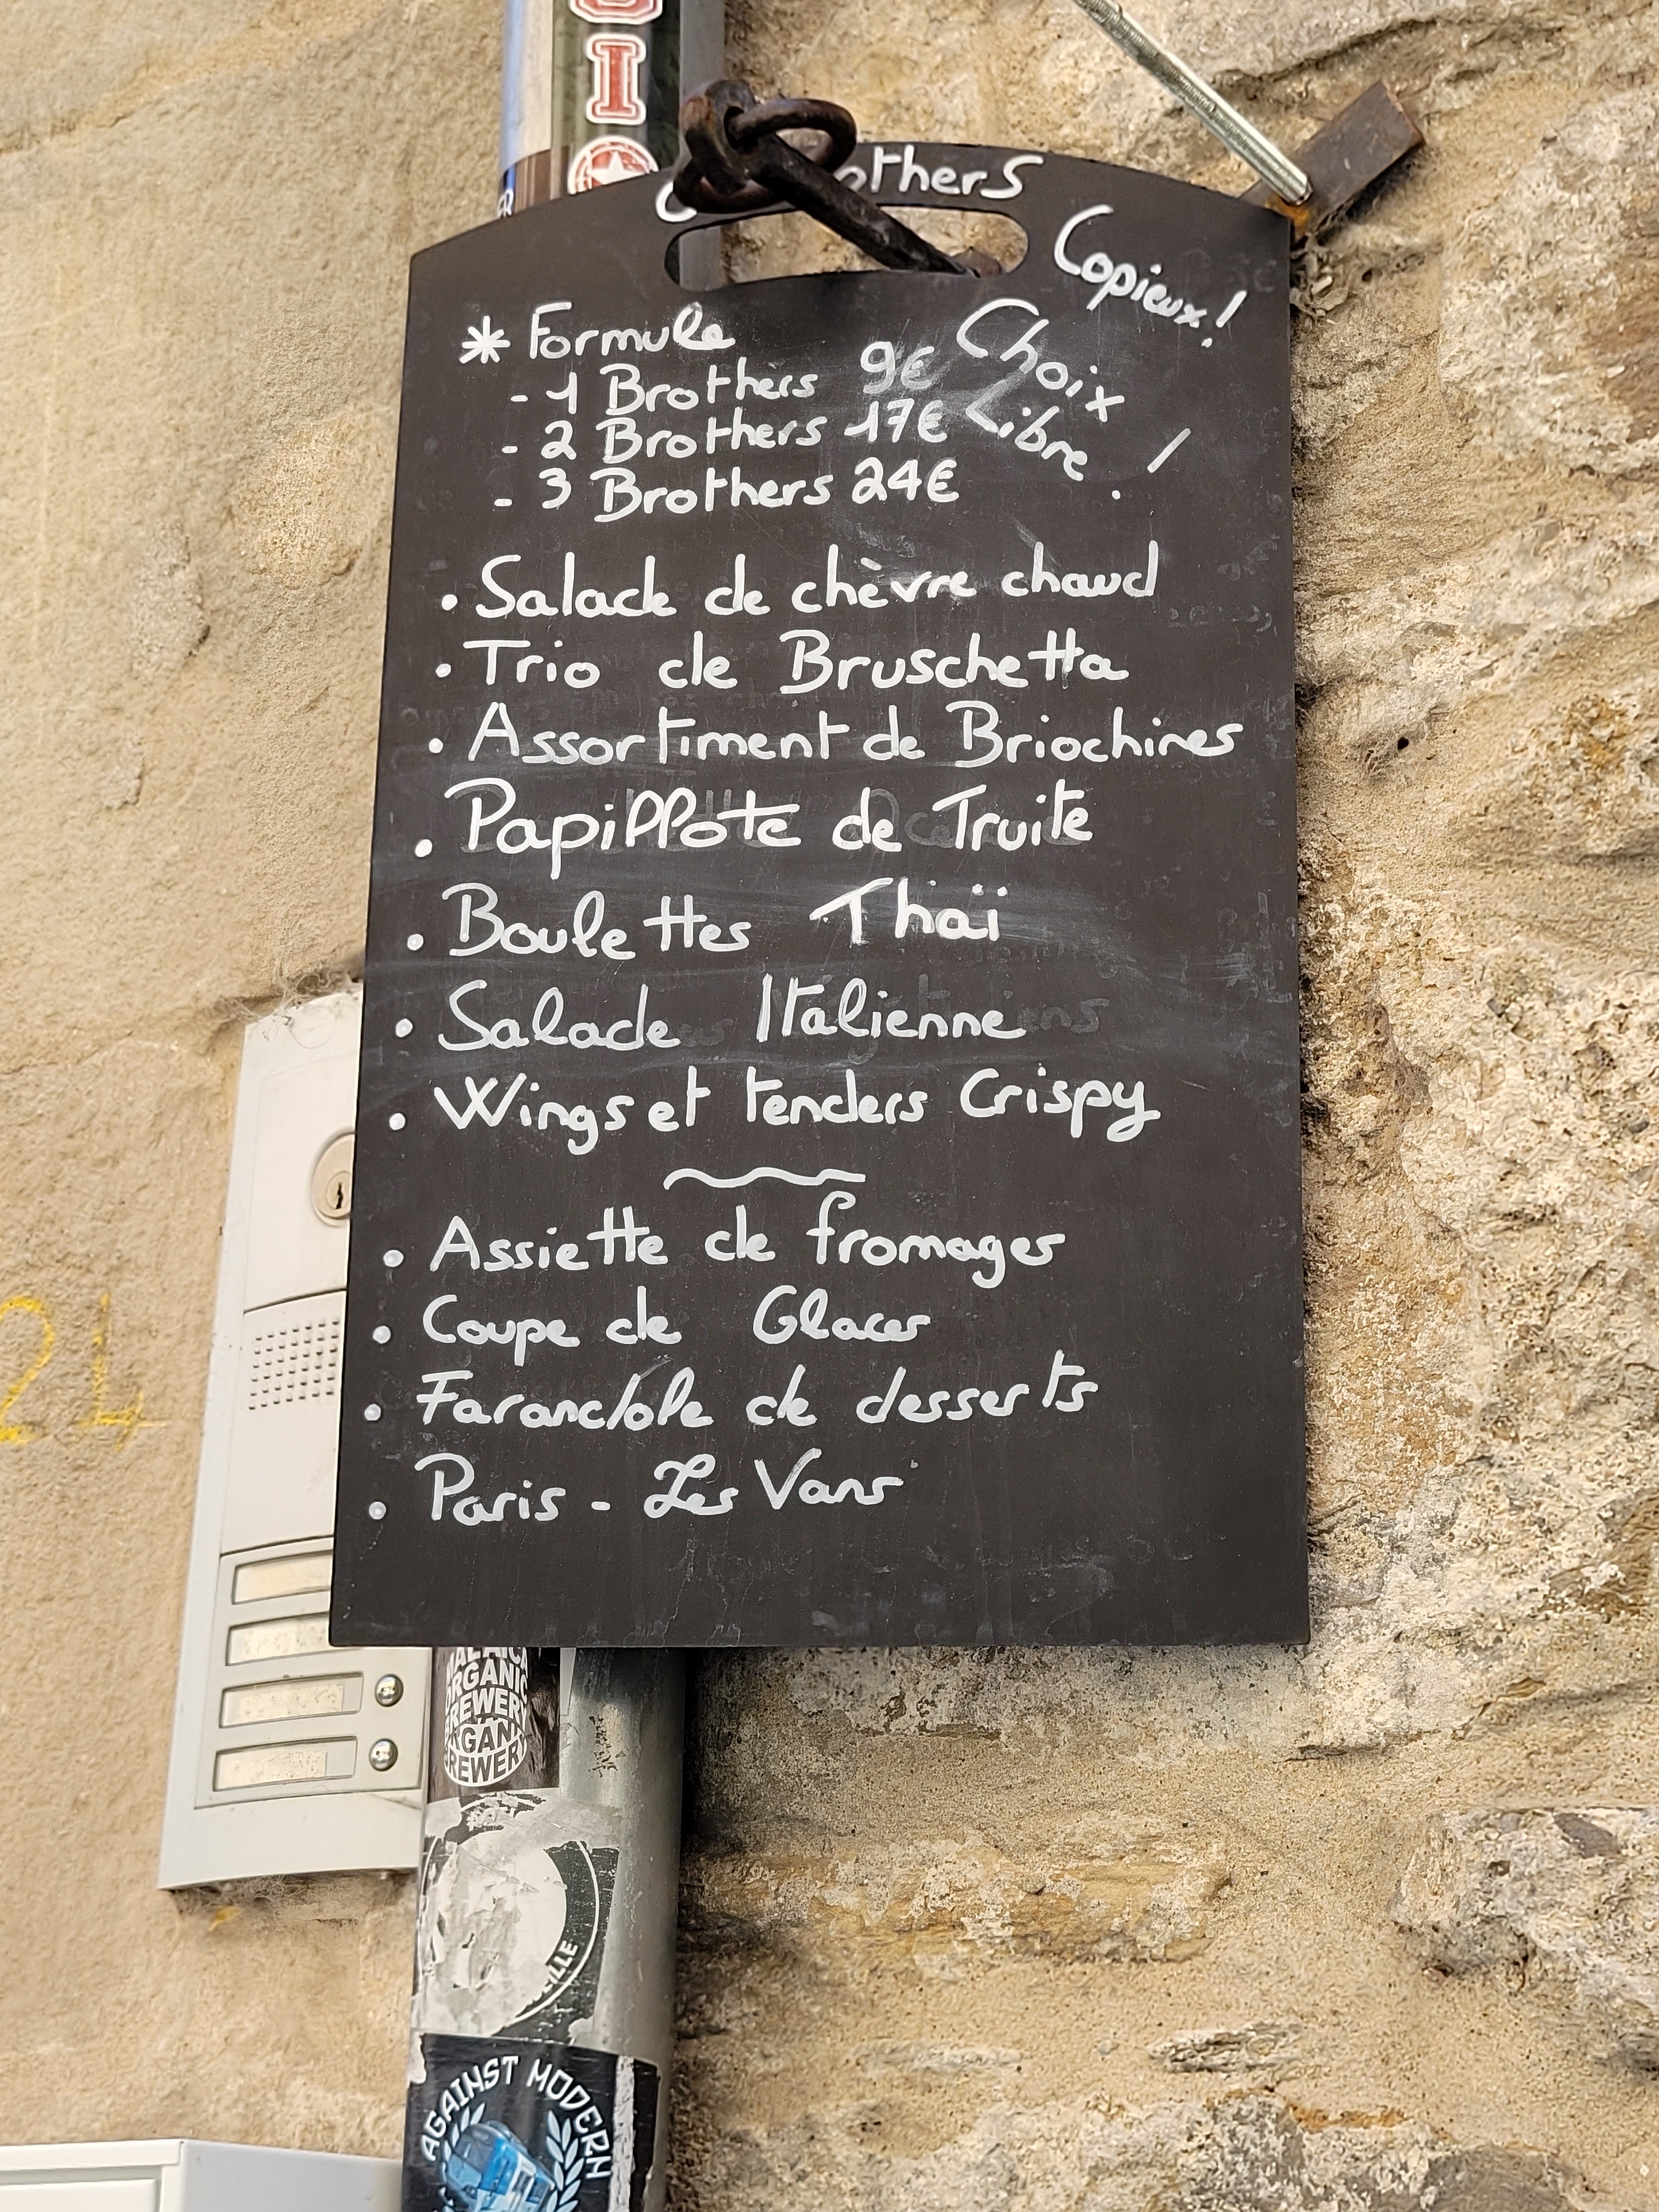 others
Copieux!
* Formule
- 1 Brothers 9€
- 2 Brothers 17€
- 3 Brothers 24€
Choix
Libre !
• Salade de chèvre chaud
• Trio de Bruschetta
• Assortiment de Briochines
• Papillote de Truite
• Boulettes Thaï
• Salade Italienne
• Wings et tenders Crispy
• Assiette de fromages
• Coupe de Glaces
• Farandole de desserts
• Paris - Les Vans
24
ORGANIC
BREWERY
ORGANIC
BREWERY
AGAINST MODERN